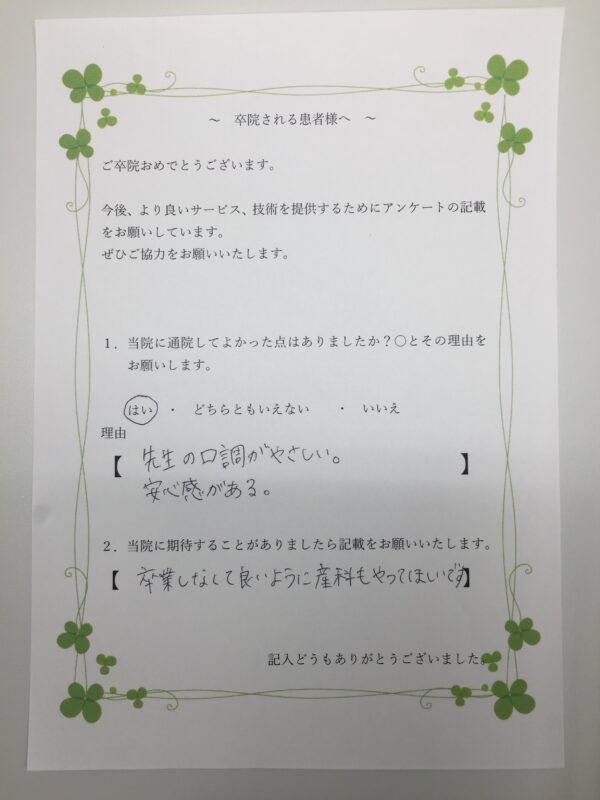 ～　卒院される患者様へ　～
ご卒院おめでとうございます。
今後、より良いサービス、技術を提供するためにアンケートの記載
をお願いしています。
ぜひご協力をお願いいたします。
１．当院に通院してよかった点はありましたか？○とその理由を
お願いします。
はい　・　どちらともいえない　・　いいえ
理由
【　先生の口調がやさしい。　】
安心感がある。
２．当院に期待することがありましたら記載をお願いいたします。
【　卒業しなくて良いように産科もやってほしいです】
記入どうもありがとうございました。